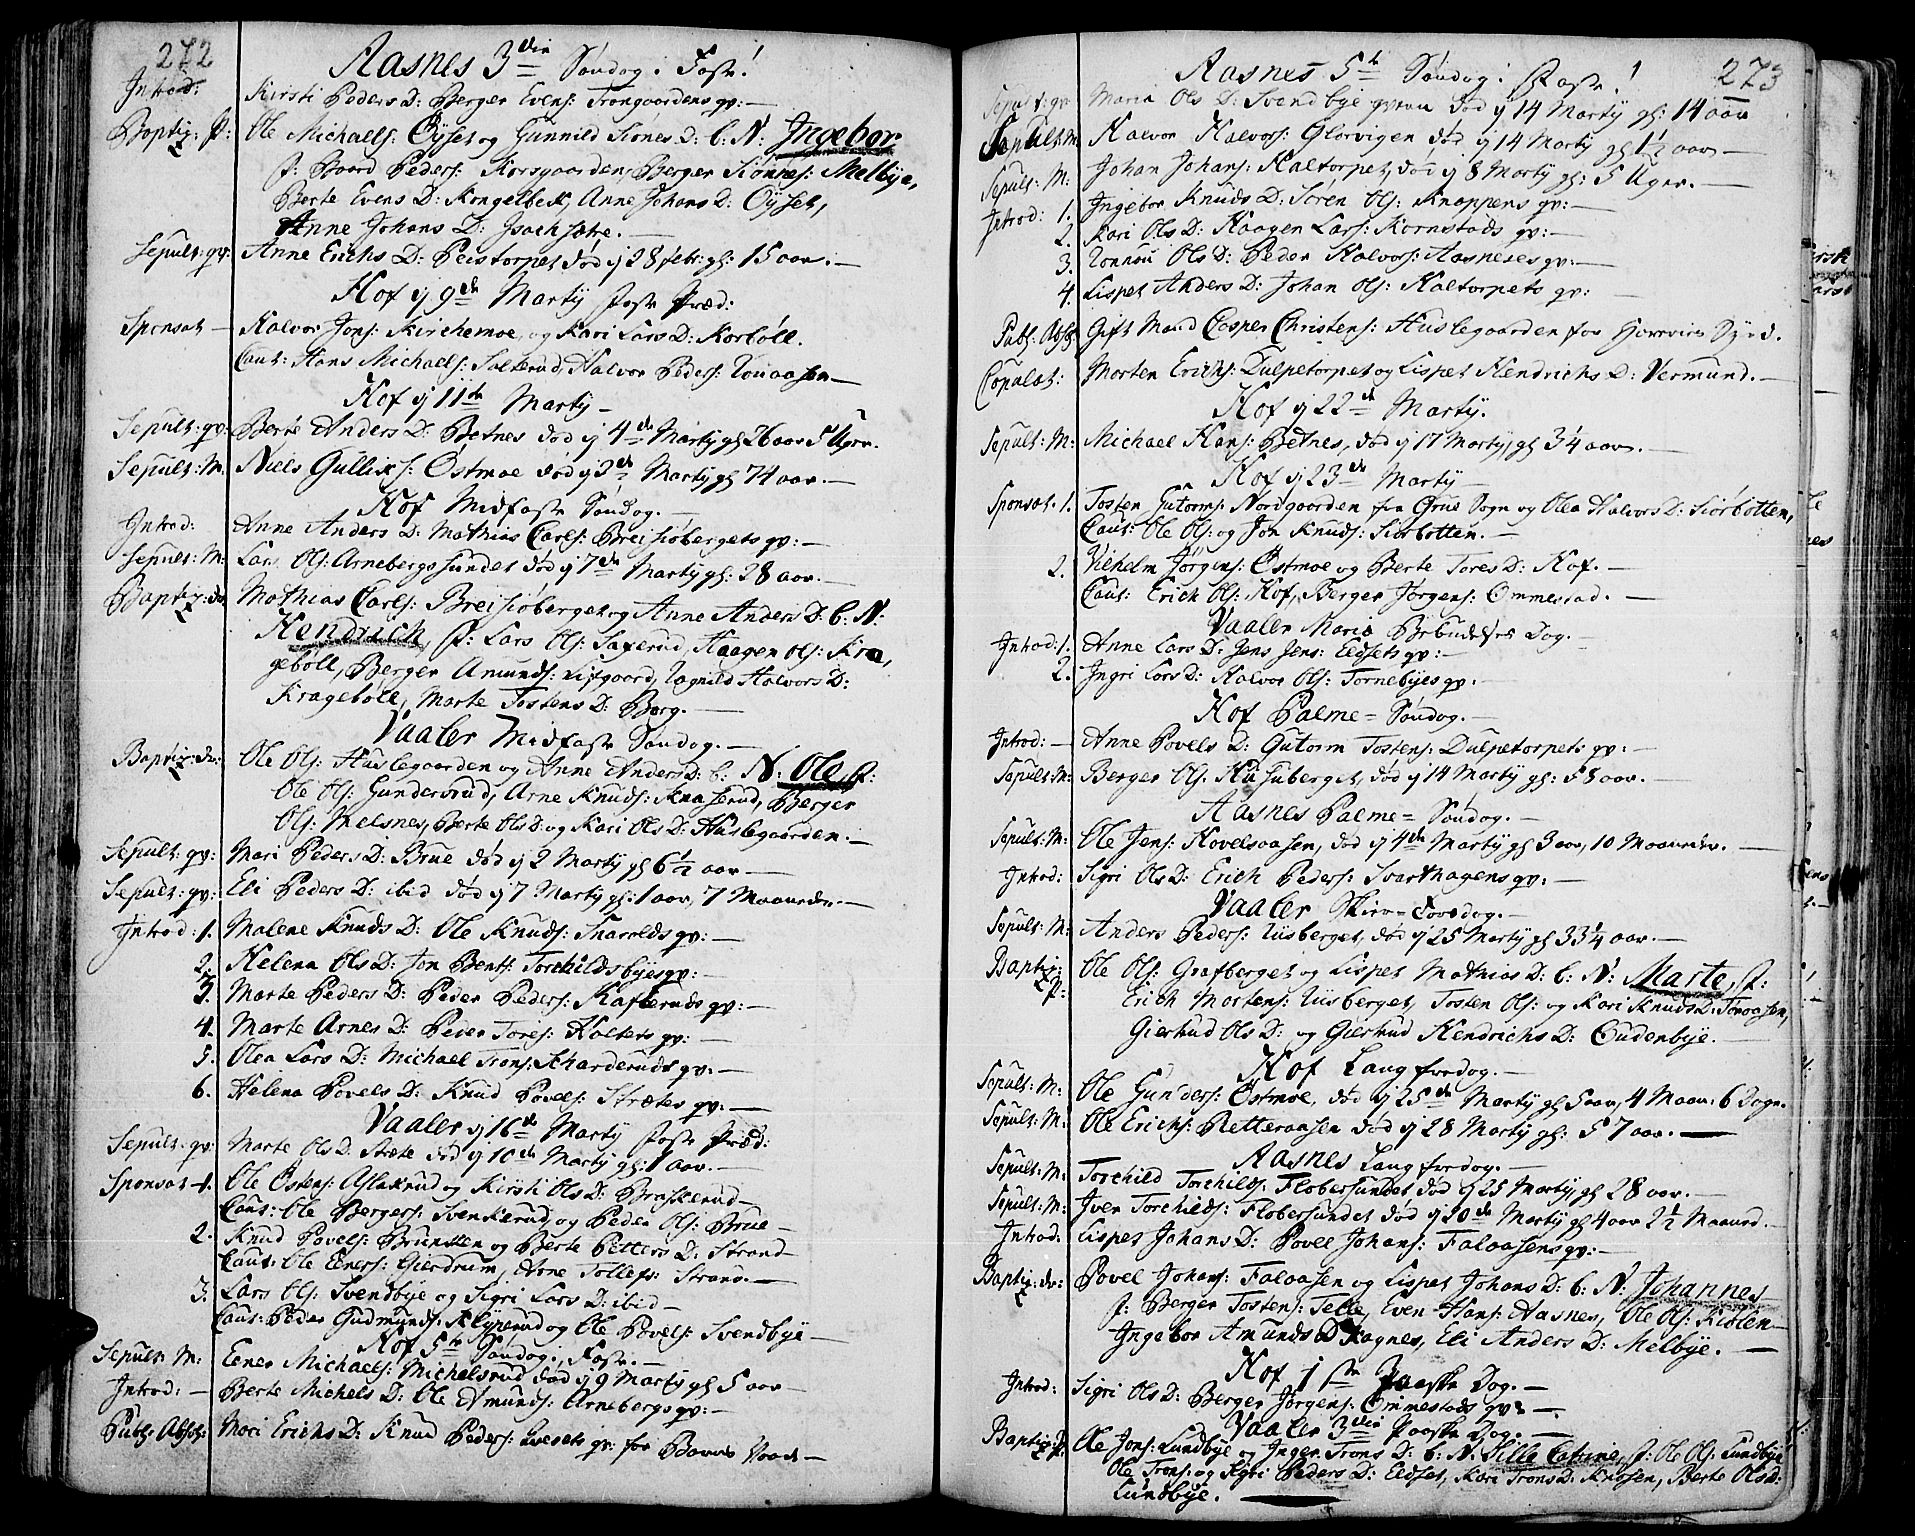 272
Aasnes 3die Søndag i Faste!
Introd: Kirsti Peders D: Berger Evens: Trongaardens qv:—
Baptiz: P: Ole Michaels: Øyset og Gunnild Siønes D: b: N: Ingebor
f: Baard Peders: Korsgaarden, Berger Siønnes: Melbye,
Berte Evens D: Kongelbek, Anne Johans D: Øyset,
Anne Johans D: Isachsætre.—
Sepult: qv: Anne Erichs D: Peistorpet død ij 28 febr: gl: 15 aar.—
Hof ij 9de Martij Faste Præd:
Sponsat — Halvor Jons: Kirchemoe, og Kari Lars D: Korböll.
Caut: Hans Michaels: Salterud, Halvor Peders: Rouaasen—
Hof ij 11te Martij—
Sepult: qv: Berte Anders D: Betnes død ij 4de Martij gl 26 aar 5 Uger.
Sepult: M: Niels Gulliks: Østmoe død ij 2de Martij gl 74 aar.—
Hof Midfaste Søndag.—
Introd: Anne Anders D: Mathias Carls: Breisiøbergets qv:—
Sepult: M: Lars Ols: Arnebergsundet død ij 7de Martij gl: 28 aar.—
Baptiz: dr: Mathias Carls: Breisiøberget og Anne Anders D: b: N:
Hendrich, f: Lars Ols: Saxerud, Haagen Ols: Kra,
geböll, Berger Amunds: Lifgaard, Ragnild Halvors D:
Krageböll, Marte Tostens D: Berg.—
Vaaler Midfaste Søndag.—
Baptiz: dr: Ole Ols: Huslegaarden og Anne Anders D: b: N: Ole f:
Ole Ols: Gundersrud, Arne Knuds: Knaserud, Berger
Ols: Melsnes, Berte Ols D: og Kari Ols D: Huslegaarden.—
Sepult: qv: Mari Peders D: Brue død ij 2 Martij gl 6 1/2 aar—
Sepult: qv: Eli Peders D: ibid død ij 7 Martij gl: 1 aar, 7 Maaneder.—
Introd: 1. Malene Knuds D: Ole Knuds: Snarolds qv:—
2. Helena Ols D: Jon Bents: Torchildsbyes qv:—
3. Marte Peders D: Peder Peders: Kafteruds qv:—
4. Marte Arnes D: Peier Tores: Holtets qv:—
5. Olea Lars D: Michael Trons: Skarderuds qv:—
6. Helena Povels D: Knud Povels: Strætes qv:—
Vaaler ij 16de Martij Faste Præd:
Sepult: qv: Marte Ols D: Stræte død ij 10de Martij gl: 1 aar.—
Sponsat 1. Ole Østens: Aslakrud og Kirsti Ols D: Braskerud—
Caut: Ole Bergers: Svenkerud og Peder Ols: Brue—
2. Knud Povels: Brunsten og Berte Petters D: Strand—
Caut: Ole Eners: Gierdrum, Arne Tollefs: Strand.—
3. Lars Ols: Svendbye og Sigri Lars D: ibid—
Caut: Peder Gudmunds: Klyperud og Ole Povels: Svendbye—
Hof 5te Søndag i Faste.—
Sepult: M: Ener Michaels: Michelsrud død ij 9 Martij gl 5 aar—
Introd: — Berte Michels D: Ole Amunds: Arnebergs qv:—
Publ: Absol: Mari Erichs D: Knud Peders: Qvesets qv: for Barne Vaade—
273
Aasnes 5te Søndag i Faste!
Sepult: qv: Maria Ols D: Svendbye qvern død ij 14 Martij gl: 14 aar
Sepult: M: Halvor Halvors: Glorvigen død ij 14 Martij gl 1 1/2 aar—
Sepult: M: Johan Johans: Haltorpet, død ij 8 Martij gl: 5 Uger.—
Introd: 1. Ingebor Knuds D: Søren Ols: Knappens qv:—
2. Kari Ols D: Haagen Lars: Kornstads qv:—
3. Ronnou Ols D: Peder Halvors: Aasneses qv:—
4. Lispet Anders D: Johan Ols: Haltorpets qv:—
Publ: Absol: Gift Mand Casper Christens: Huslegaarden for Horeries Synd.
Copulat: Morten Erichs: Dulpetorpet og Lispet Hendrichs D: Vermund.—
Hof ij 22de Martij.
Sepult: M: Michael Hans: Betnes, død ij 17 Martij, gl 3 1/4 aar.—
Hof ij 23de Martij—
Sponsat. 1. Tosten Gutorms: Nordgaarden fra Grue Sogn og Olea Halvors D: Siørbotten,
Caut: Ole Ols: og Jon Knuds: Siørbotten.—
2. Vilhelm Jørgens: Østmoe og Berte Tores D: Hof.—
Caut: Erich Ols: Hof, Berger Jørgens: Ommestad.—
Vaaler Mariæ Bebudelses Dag.—
Introd: 1. Anne Lars D: Jens Jens: Eldsets qv:—
2. Ingri Lars D: Halvor Ols: Tornebyes qv:—
Hof Palme=Søndag.—
Introd:— Anne Povels D: Gutorm Tostens: Dulpetorpets qv:—
Sepult: M: Berger Ols: Husuberget, død ij 14 Martij gl: 58 aar.—
Aasnes Palme=Søndag.—
Sepult: M: Ole Jens: Hovelsaasen, død ij 4de Martij gl 3 aar, 10 Maaneder.—
Introd: Sigri Ols D: Erich Peders: Svarthagens qv:—
Vaaler Skier=Torsdag.—
Sepult: M: Anders Peders: Risberget, død ij 25 Martij gl 33 1/4 aar.—
Baptiz: P: Ole Ols: Grafberget og Lispet Mathias D: b: N: Marte, f:
Erich Mortens: Risberget, Tosten Ols: og Kari Knuds D: Toraasen,
Giertrud Ols D: og Giertrud Hendrichs D: Gudenbye.—
Hof Langfredag.—
Sepult: M: Ole Gunders: Østmoe, død ij 25de Martij gl 5 aar, 4 Maan: 6 Dage.
Sepult: M: Ole Erichs: Retteraasen død ij 28 Martij gl: 57 aar.—
Aasnes Langfredag.—
Sepult: M: Torchild Torchilds: Flobersundet død ij 25 Martij gl 28 aar.—
Sepult: M: Iver Torchilds: Flobersundet død ij 20de Martij gl 4 aar 2 1/2 Maaned.—
Introd: Lispet Johans D: Povel Johans: Falaasens qv:—
Baptiz: dr: Povel Johans: Falaasen og Lispet Johans D: b: N: Johannes
f: Berger Tostens: Telle, Even Hans: Aasnes, Ole Ols: Kiølen—
Ingebor Amunds D: Hagnes, Eli Anders D: Melbye.—
Hof 1ste Paaske Dag.—
Introd: Sigri Ols D: Berger Jørgens: Ommestads qv:—
Vaaler 3die Paaske Dag.—
Baptiz: P: Ole Jons: Lundbye og Inger Trons D: b: N: Sille Catrine, f: Ole Ols: Lundbye
Ole Trons: og Sigri Peders D: Eldset, Kari Trons D: Knasen, Berte Ols D:
Lundbye.—